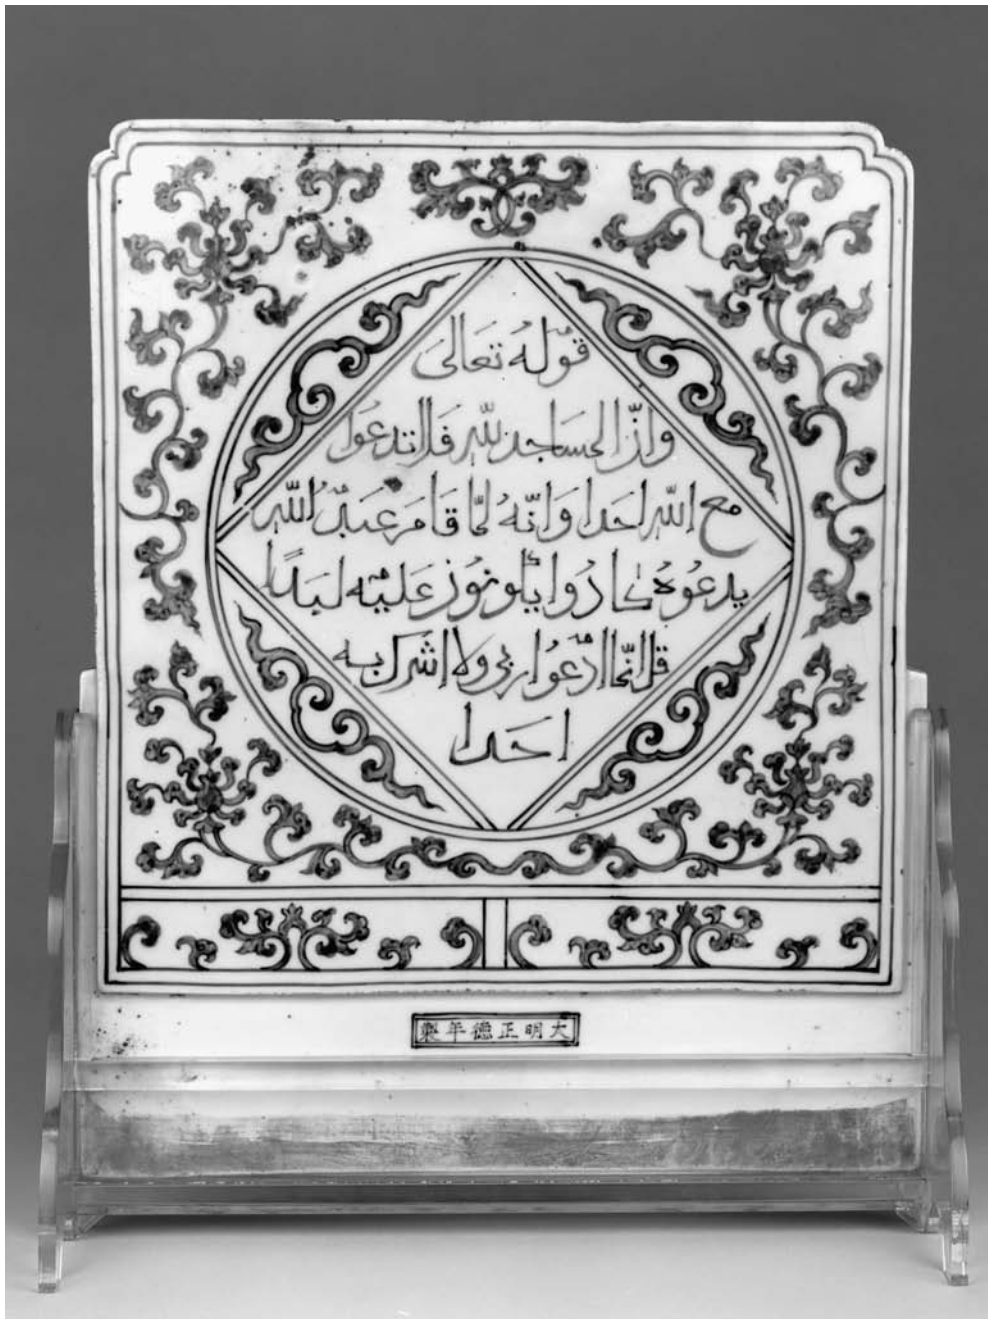 قوله تعالى
وانّ المساجد للّٰه فلا تدعوا
مع اللّٰه احدا وَانّهُ لمّا قَامَ عَبدُ اللّٰه
يدعُوهُ كادُوا يكونُونَ عَليْه لبَدًا
قل انّما ادعُوا ربي ولا اشرك به
احَدا
大明正德年製